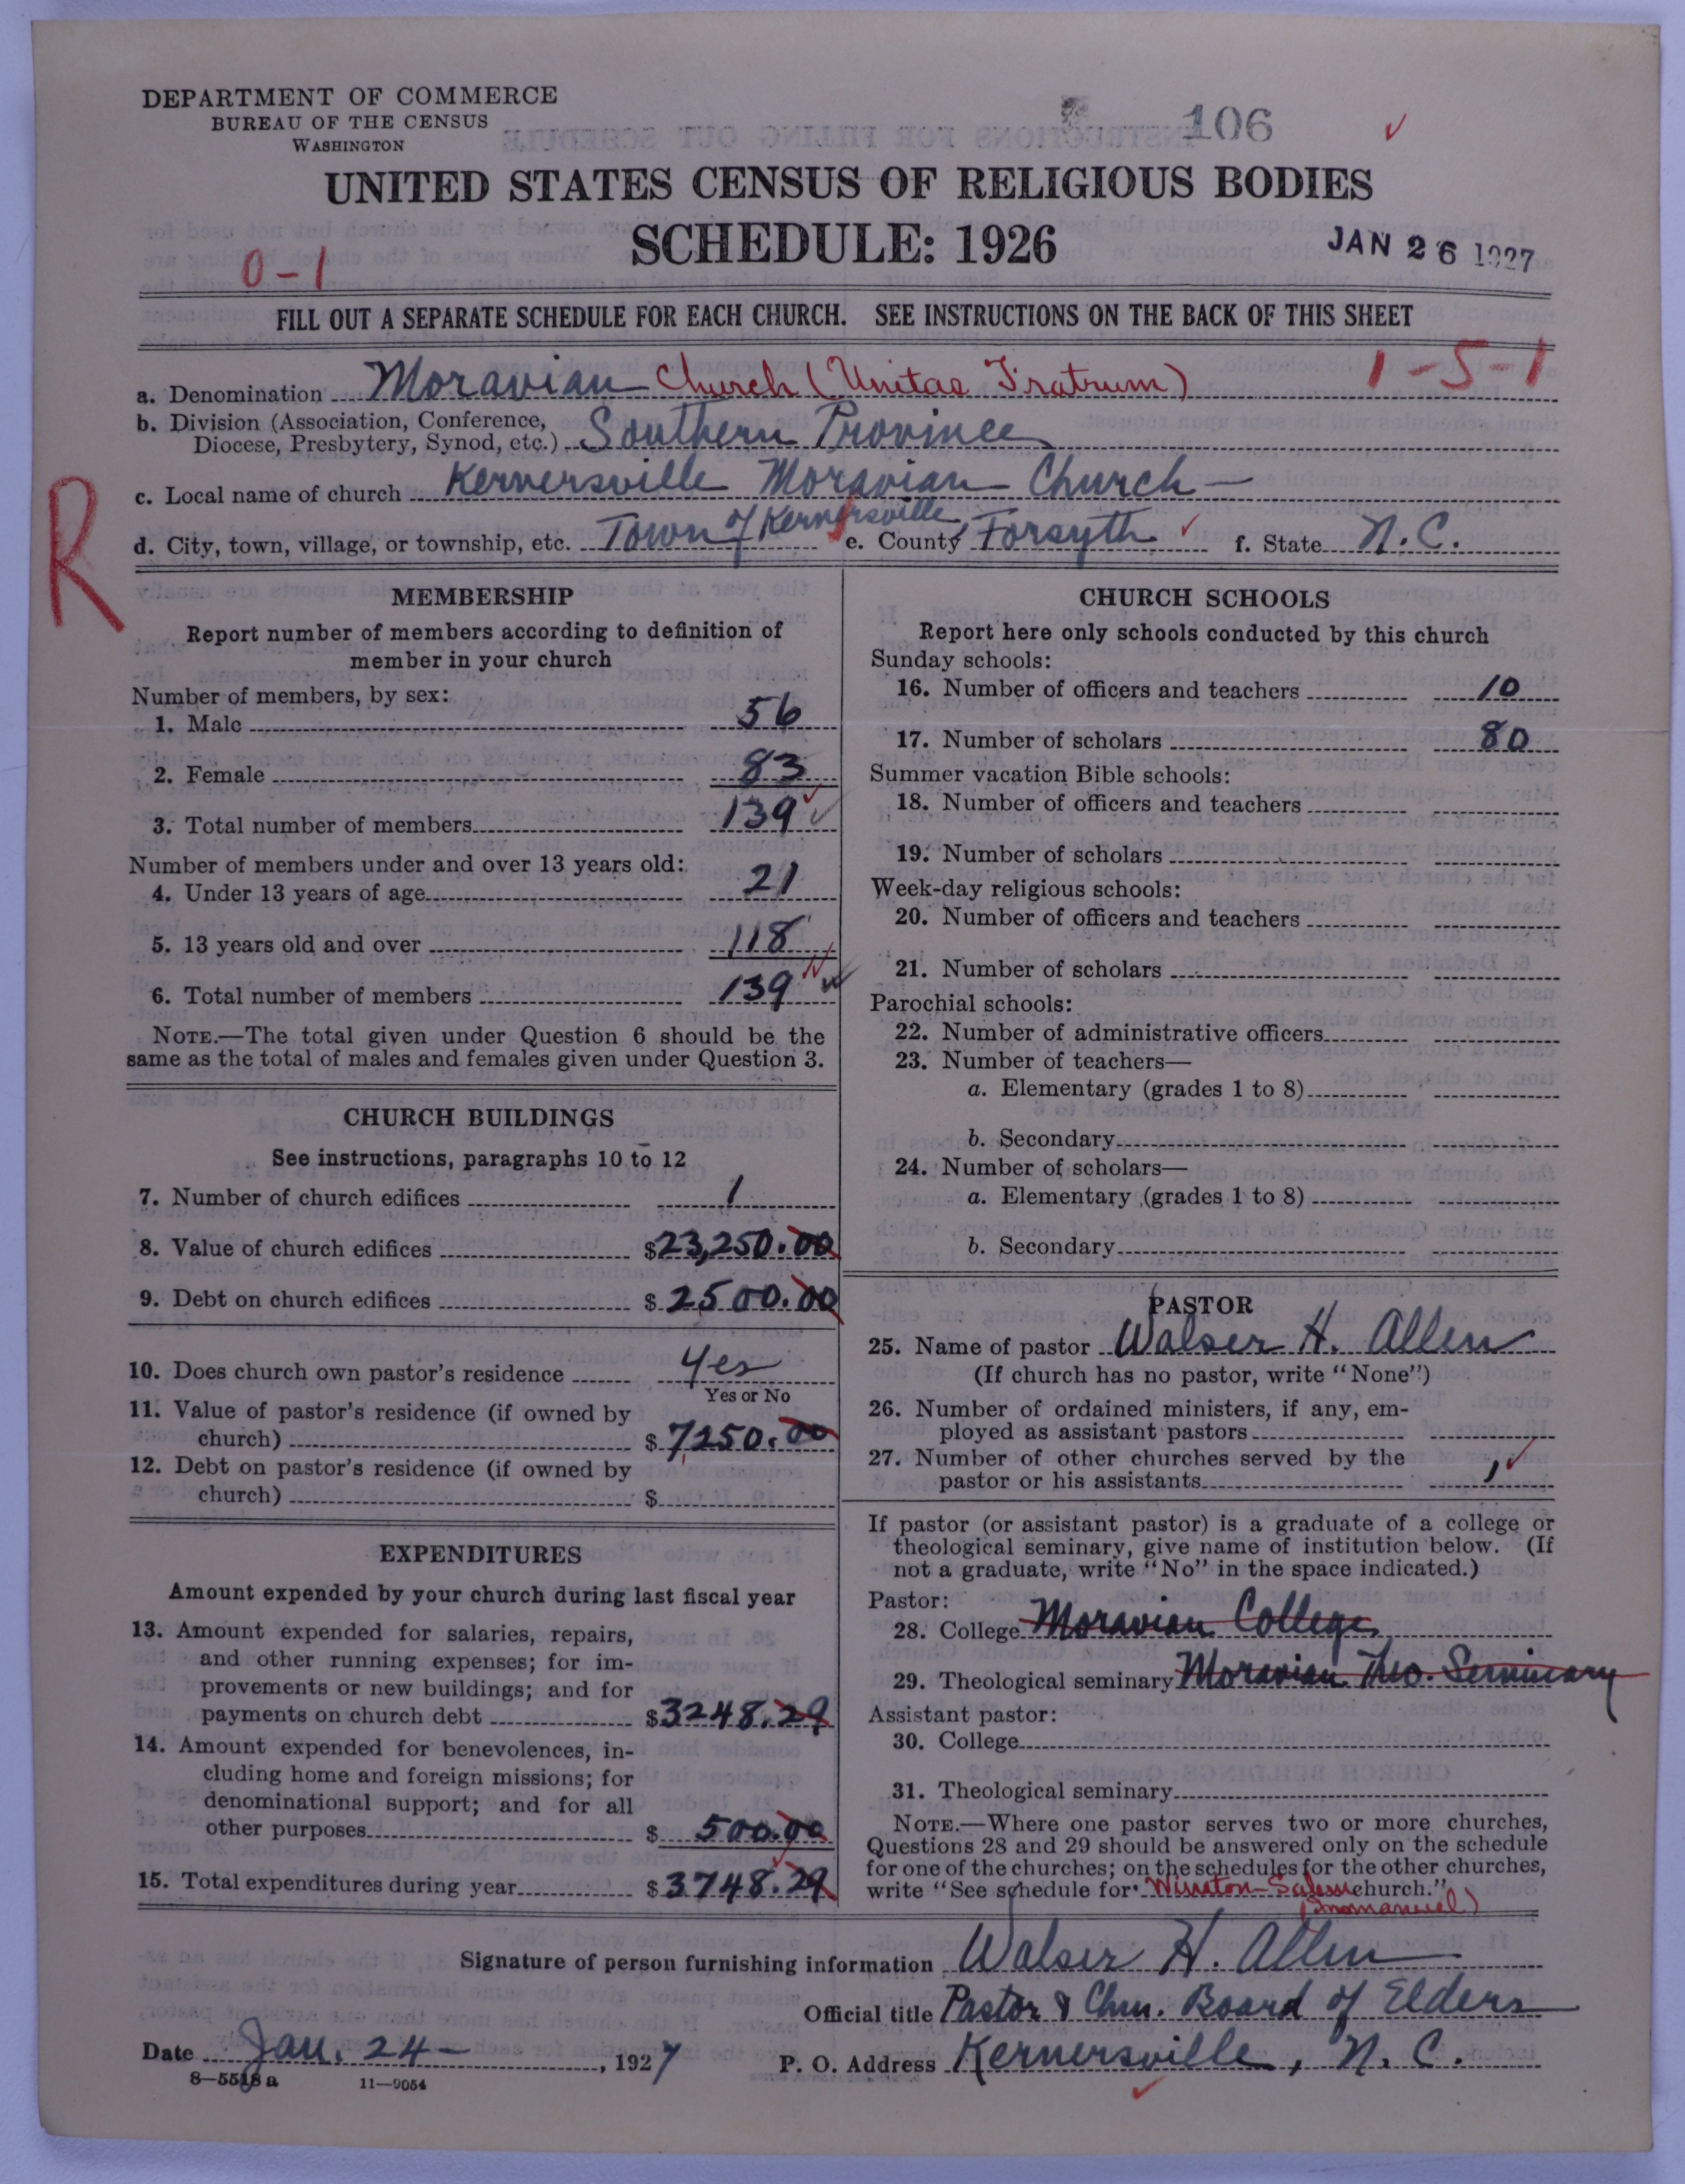 DEPARTMENT OF COMMERCE
BUREAU OF THE CENSUS
WASHINGTON
106
UNITED STATES CENSUS OF RELIGIOUS BODIES
SCHEDULE: 1926
JAN 26 1927
0-1
FILL OUT A SEPARATE SCHEDULE FOR EACH CHURCH. SEE INSTRUCTIONS ON THE BACK OF THIS SHEET
1-5-1
a. Denomination Moravian Church (Unitas Fratrum)
b. Division (Association, Conference,
Diocese, Presbytery, Synod, etc.) Southern Province
c. Local name of church Kernersville Moravian Church
d. City, town, village, or township, etc. Town of Kernersville e. County Forsyth f. State N.C.
R
MEMBERSHIP
Report number of members according to definition of
member in your church
Number of members, by sex:
1. Male 56
2. Female 83
3. Total number of members 139
Number of members under and over 13 years old:
4. Under 13 years of age 21
5. 13 years old and over 118
6. Total number of members 139
NOTE.—The total given under Question 6 should be the
same as the total of males and females given under Question 3.
CHURCH BUILDINGS
See instructions, paragraphs 10 to 12
7. Number of church edifices 1
8. Value of church edifices $23,250.00
9. Debt on church edifices $2500.00
10. Does church own pastor's residence Yes
Yes or No
11. Value of pastor's residence (if owned by
church) $7250.00
12. Debt on pastor's residence (if owned by
church) $
EXPENDITURES
Amount expended by your church during last fiscal year
13. Amount expended for salaries, repairs,
and other running expenses; for im-
provements or new buildings; and for
payments on church debt $3248.29
14. Amount expended for benevolences, in-
cluding home and foreign missions; for
denominational support; and for all
other purposes $500.00
15. Total expenditures during year $3748.29
CHURCH SCHOOLS
Report here only schools conducted by this church
Sunday schools:
16. Number of officers and teachers 10
17. Number of scholars 80
Summer vacation Bible schools:
18. Number of officers and teachers
19. Number of scholars
Week-day religious schools:
20. Number of officers and teachers
21. Number of scholars
Parochial schools:
22. Number of administrative officers
23. Number of teachers—
a. Elementary (grades 1 to 8)
b. Secondary
24. Number of scholars—
a. Elementary (grades 1 to 8)
b. Secondary
PASTOR
25. Name of pastor Walser H. Allen
(If church has no pastor, write "None")
26. Number of ordained ministers, if any, em-
ployed as assistant pastors
27. Number of other churches served by the
pastor or his assistants 1
If pastor (or assistant pastor) is a graduate of a college or
theological seminary, give name of institution below. (If
not a graduate, write "No" in the space indicated.)
Pastor:
28. College Moravian College
29. Theological seminary Moravian Theo. Seminary
Assistant pastor:
30. College
31. Theological seminary
NOTE.—Where one pastor serves two or more churches,
Questions 28 and 29 should be answered only on the schedule
for one of the churches; on the schedules for the other churches,
write "See schedule for Winston-Salem church."
(Immanuel)
Signature of person furnishing information Walser H. Allen
Official title Pastor & Chm. Board of Elders
Date Jan. 24 , 1927 P. O. Address Kernersville, N. C.
8—5518 a 11—9054